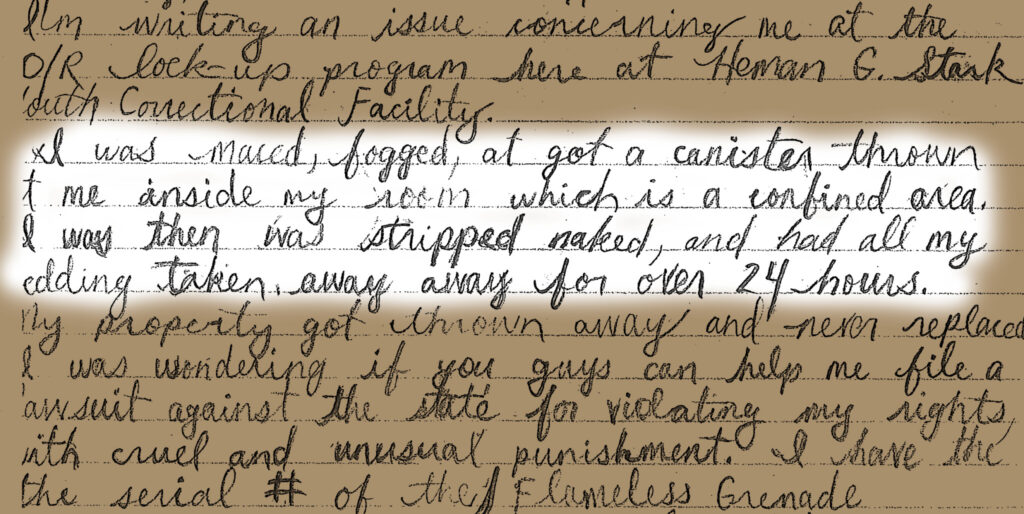 I'm writing an issue concerning me at the
O/R lock-up program here at Heman G. Stark
outh Correctional Facility.
I was maced, fogged, at got a canister thrown
t me inside my room which is a confined area.
I was then was stripped naked, and had all my
edding taken. away away for over 24 hours.
My property got thrown away and never replaced
I was wondering if you guys can help me file a
awsuit against the state for violating my rights,
ith cruel and unusual punishment. I have the
the serial # of the Flameless Grenade